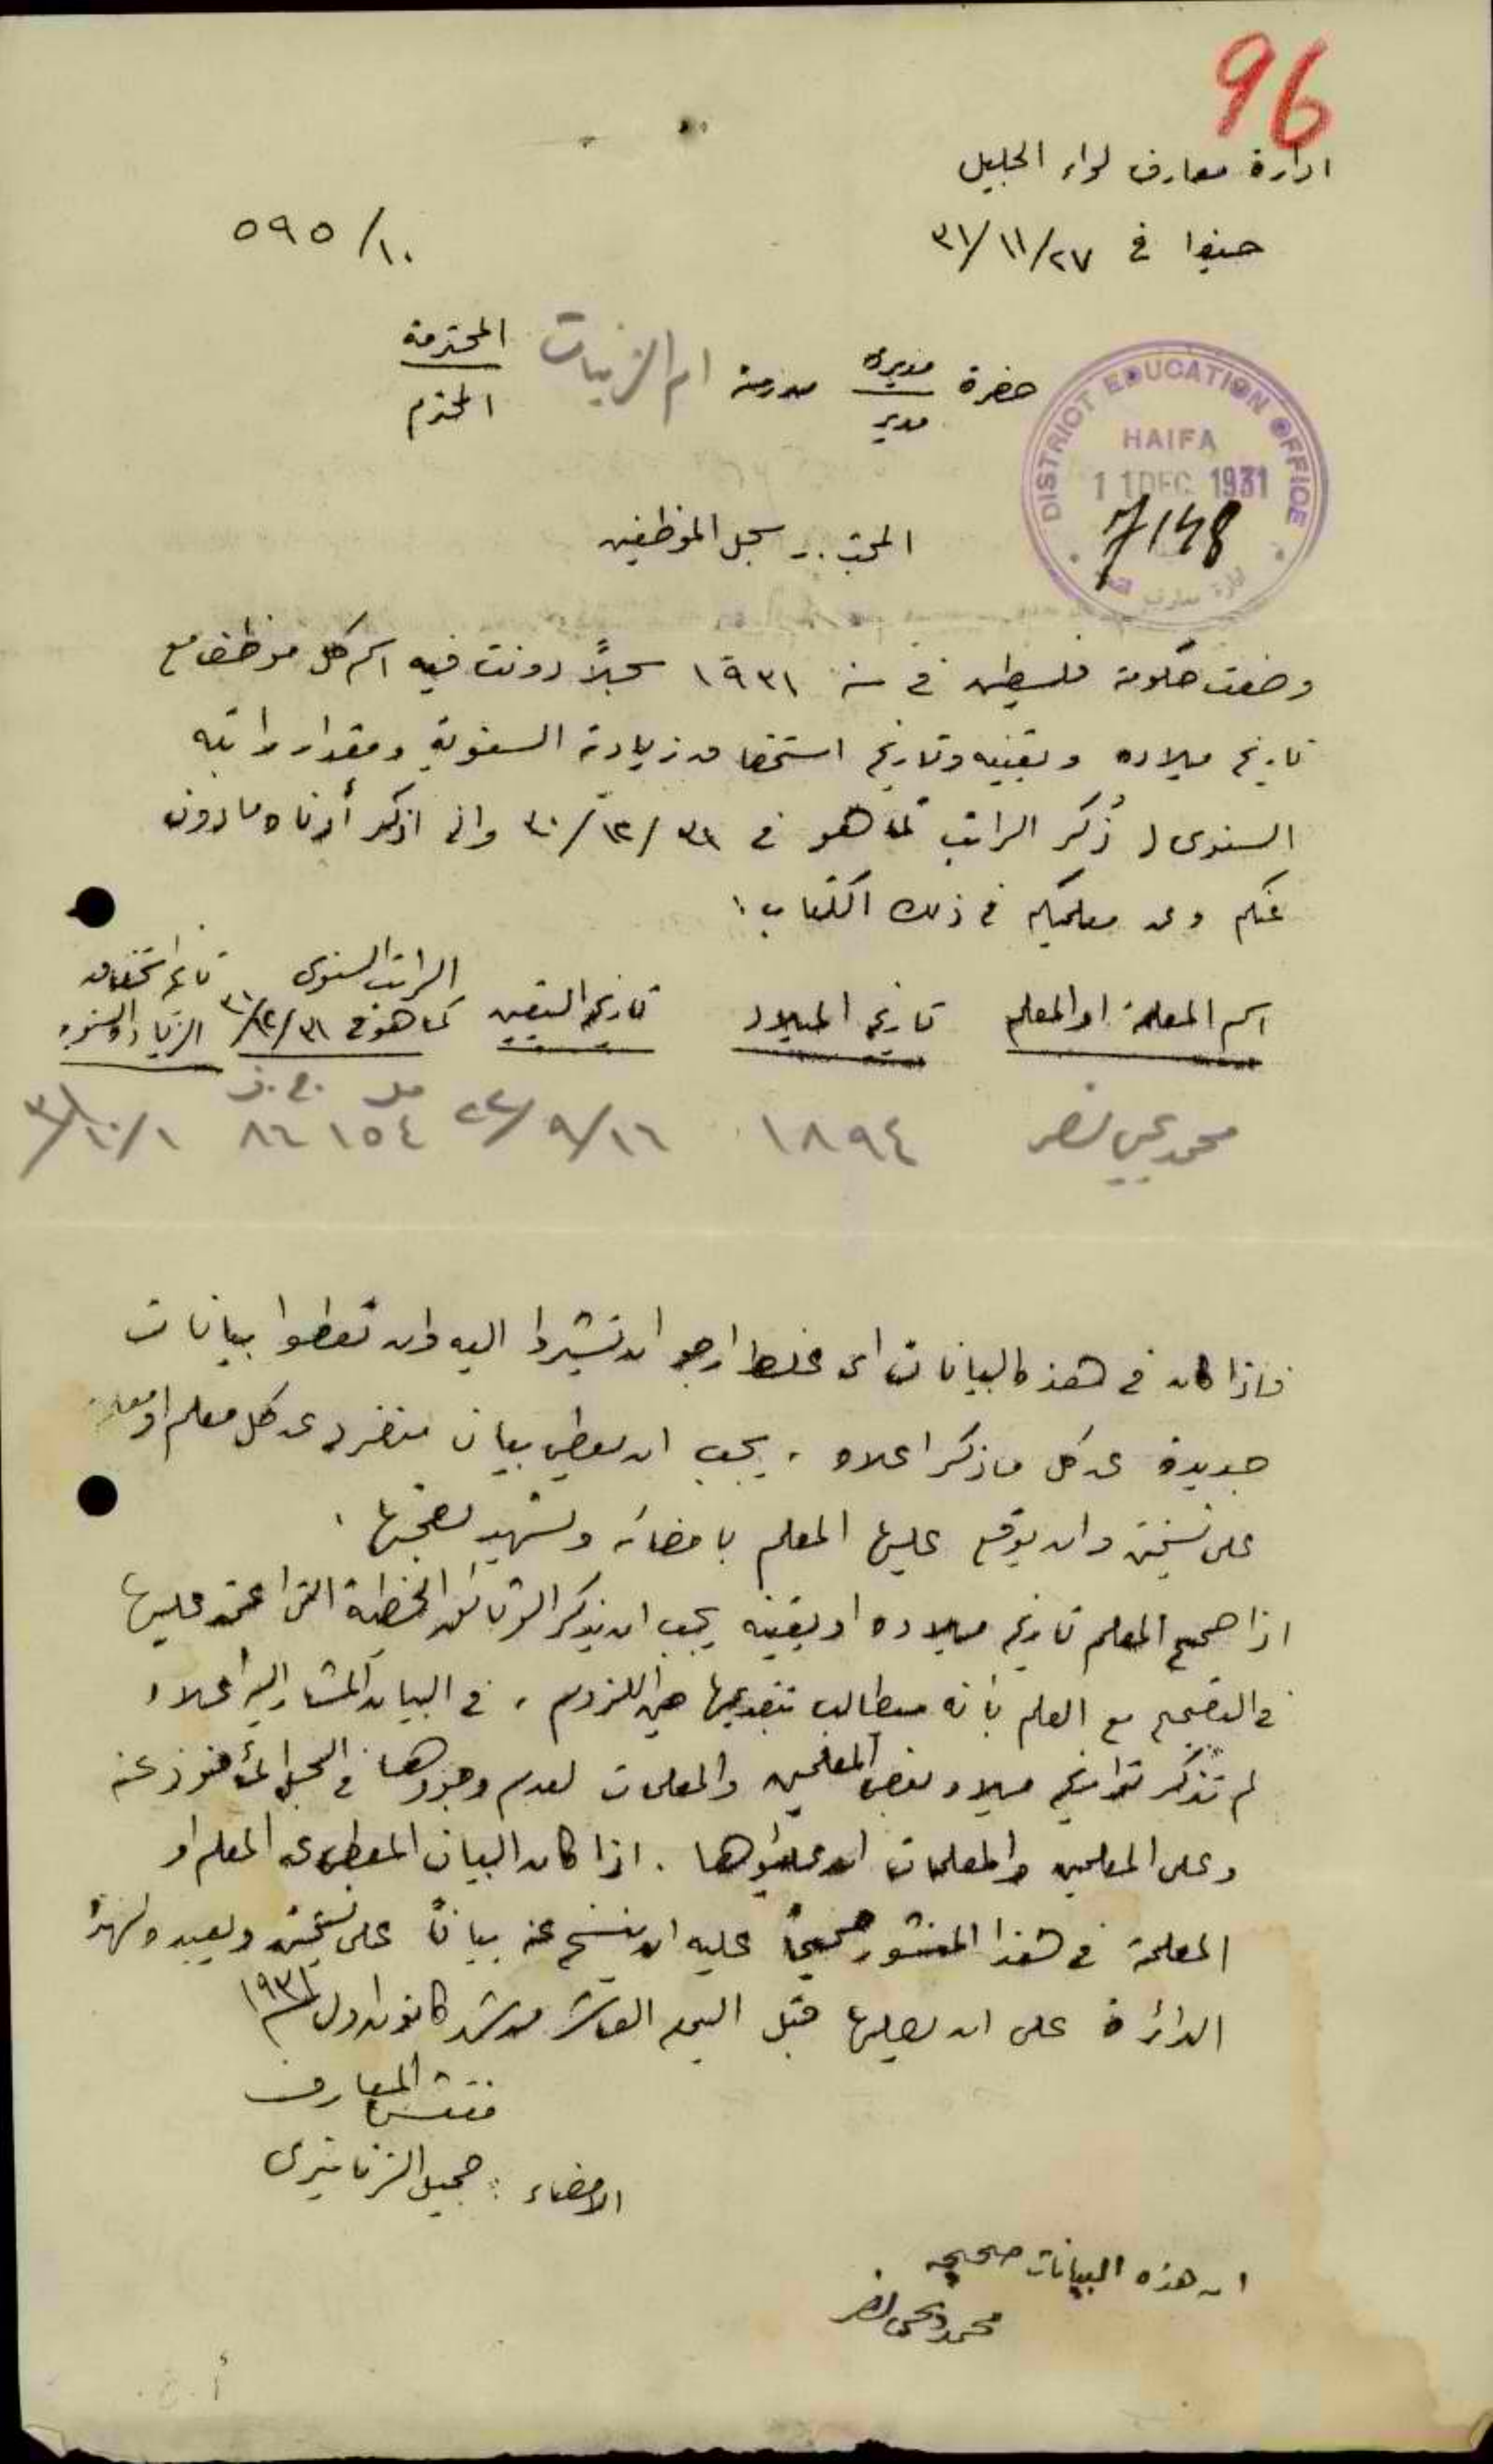 96
ادارة معارف لواء الجليل
حيفا في ٢٧/١١/٣١
١٠/٥٩٥
حضرة مديرة مدرسة ام الزينات المحترمة
مدير المحترم
DISTRICT EDUCATION OFFICE
HAIFA
11 DEC 1931
7148
سجل الموظفين
وضعت حكومة فلسطين في سنة ١٩٣١ سجلاً دونت فيه اسم كل موظف مع
تاريخ ميلاده وتعيينه وتاريخ استحقاق زيادته السنوية ومقدار راتبه
السنوي ( ذُكر الراتب كما هو في ٣١/١٢/٣٠ واني اذكر أدناه ما دون
عنكم وعن معلميكم في ذلك الكتاب :
اسم المعلمة او المعلم تاريخ الميلاد تاريخ التعيين الراتب السنوي تاريخ استحقاق
كما هو في ٣١/١٢/٣٠ الزيادة السنوية
مل ج.ف
محمد يحيى نصر ١٨٩٤ ١٦/٩/٢٢ ١٥٤ ٨٦ ١/١٠/٣١
فاذا كان في هذه البيانات اى غلط ارجو ان تشيروا اليه وان تعطوا بيانات
جديدة عن كل ما ذكر اعلاه . يجب ان يعطي بيان منفرد عن كل معلم او معلمة
على نسختين وان يوقع عليها المعلم بامضائه ويشهد بصحتها .
اذا صحح المعلم تاريخ ميلاده او تعيينه يجب ان يذكر الوثائق الخطية التي اعتمد عليها
في التصحيح مع العلم بأنه سيطالب بتقديمها حين اللزوم . في البيان المشار اليه اعلاه
لم تذكر تواريخ ميلاد بعض المعلمين والمعلمات لعدم وجودها في السجل المأخوذ عنه
وعلى المعلمين والمعلمات ان يملئوها . اذا كان البيان المعطى عن المعلم او
المعلمة في هذا المنشور صحيحاً عليه ان ينسخ عنه بياناً على نسختين ويعيده لهذه
الدائرة على ان يصلها قبل اليوم العاشر من شهر كانون اول ١٩٣١
مفتش المعارف
الامضاء : جميل الزنانيري
ان هذه البيانات صحيحه
محمد يحيى نصر